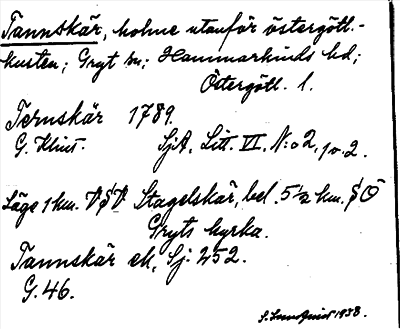 Tannskär, holme utanför östergötl.-
kusten; Gryt sn; Hammarkinds hd;
Östergötl. l.
Ternskär 1789.
G. Klint. SjA, Litt. VI, N:o 2, 1 o. 2.
Läge 1 km. VSV Stagelskär, bel. 5 1/2 km. SO
Gryts kyrka.
Tannskär ek, Sj: 252.
G. 46.
S. Lundquist 1938.